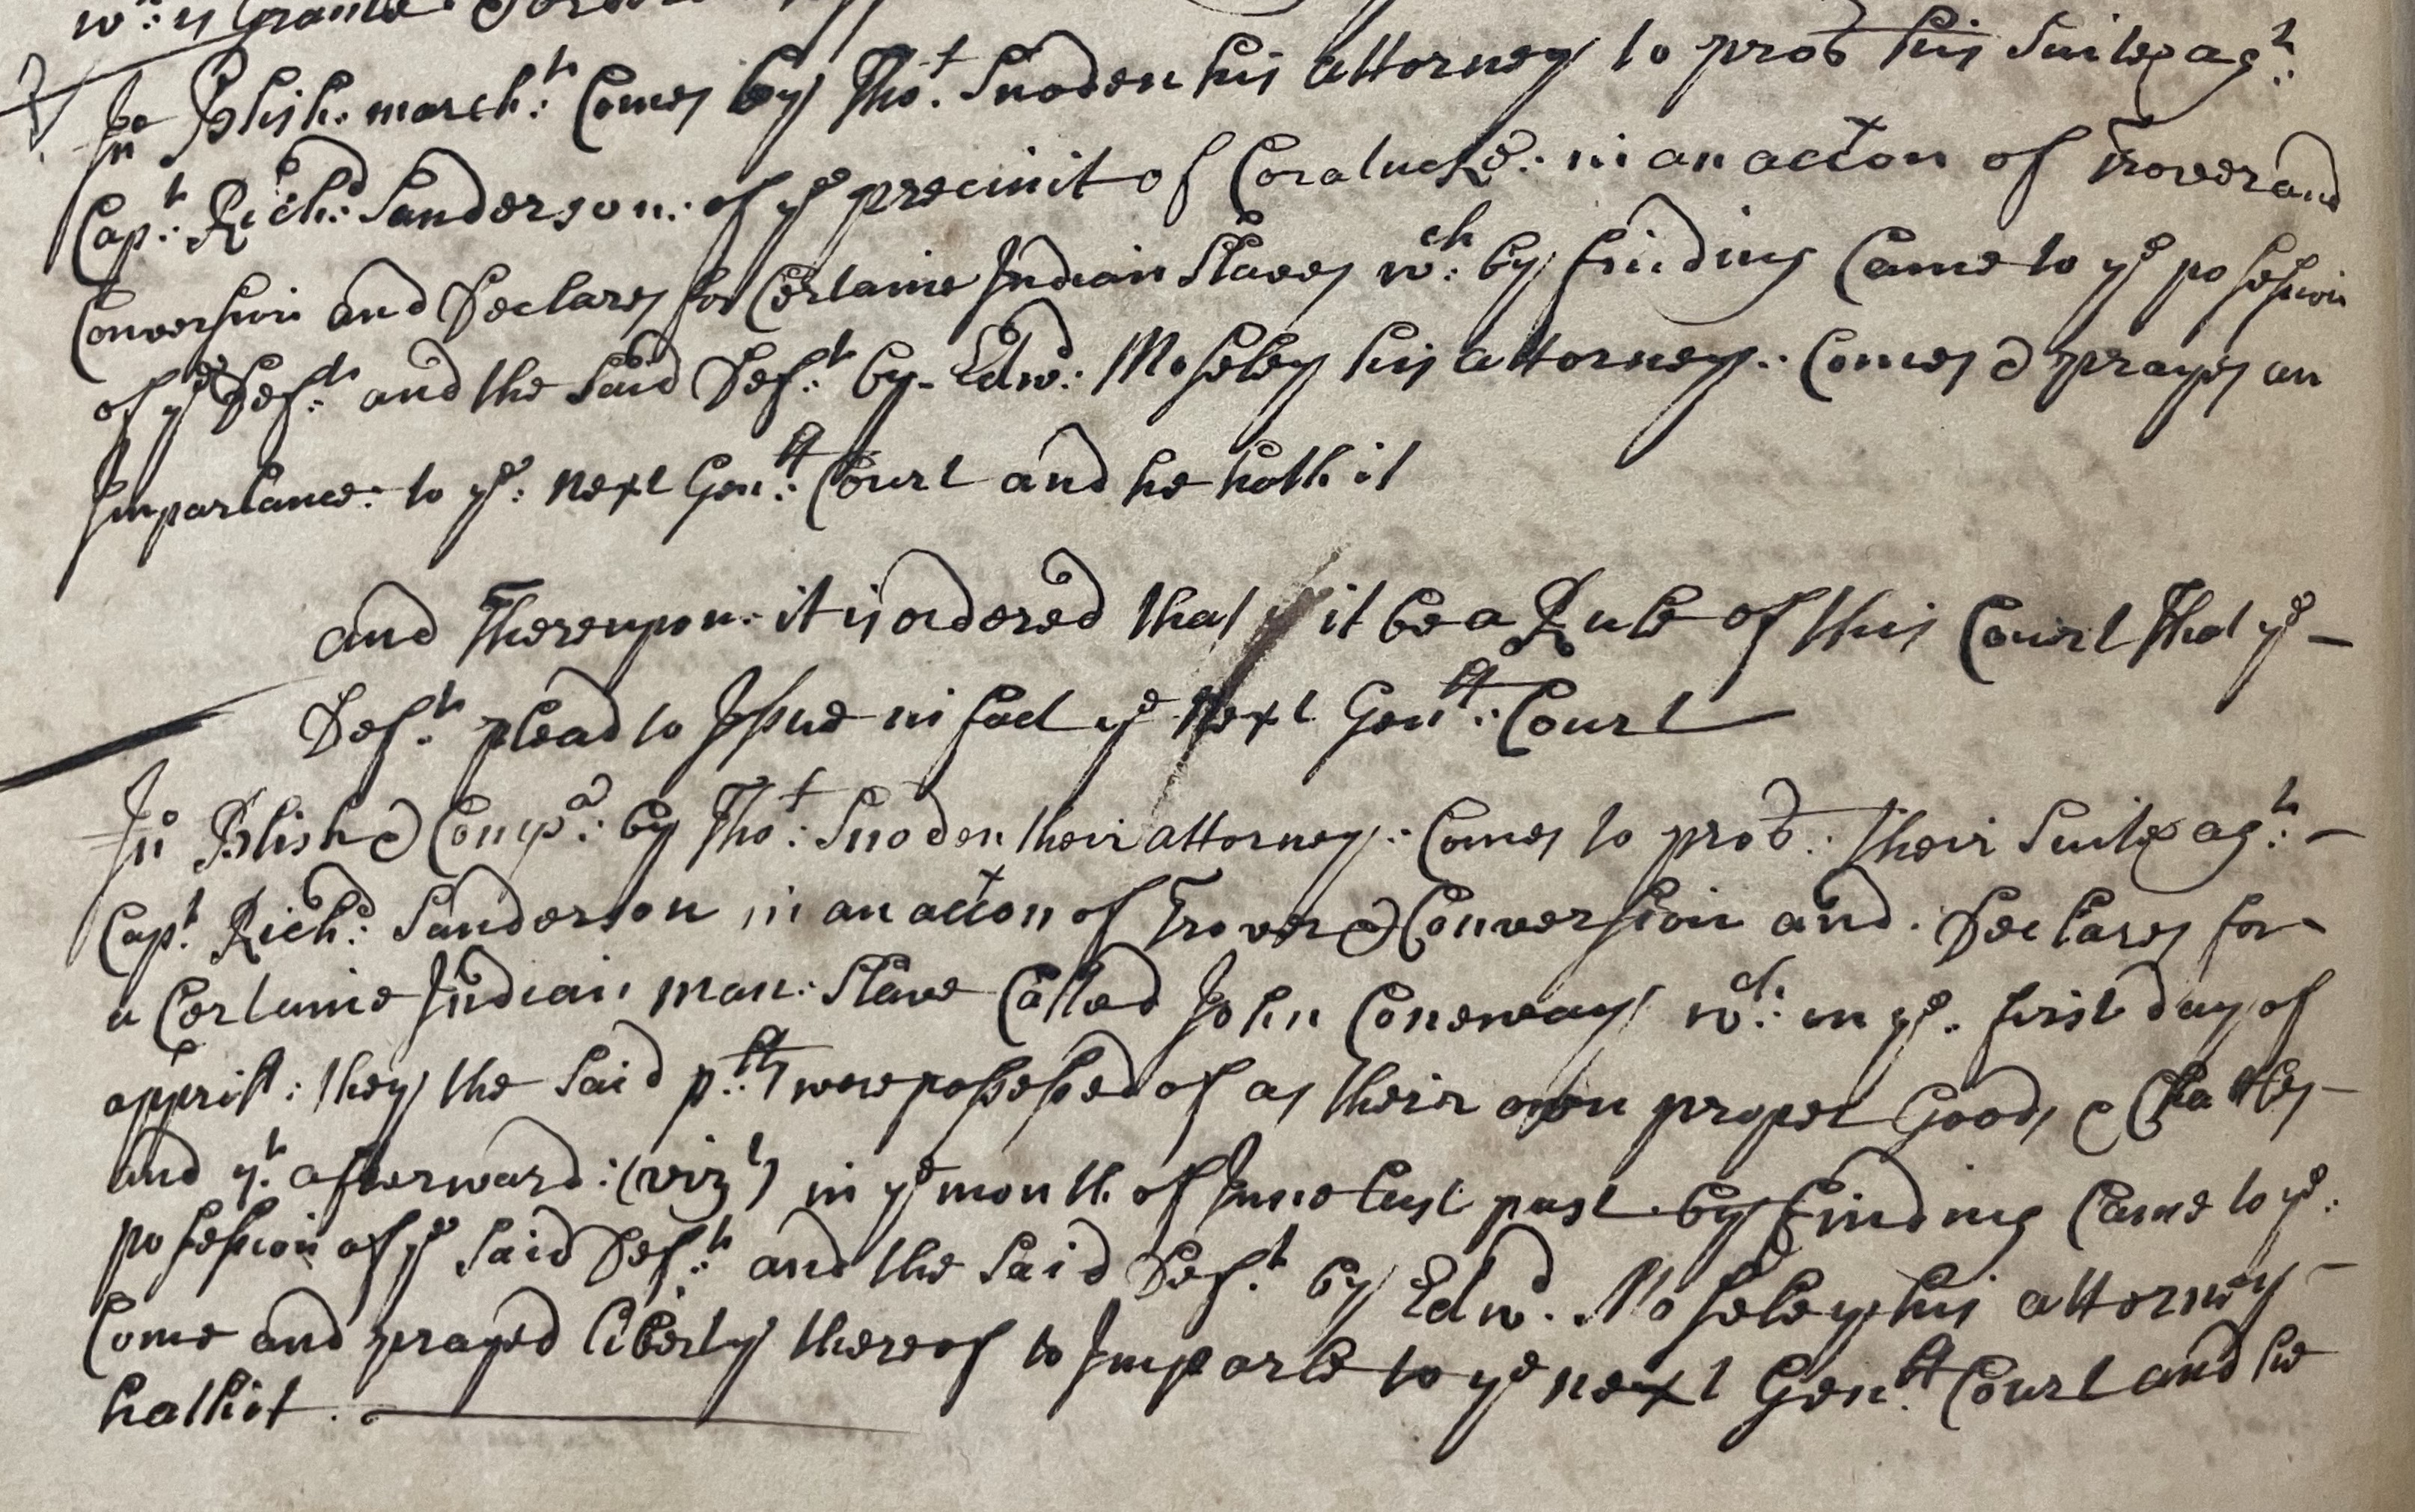 Jno Blish: march:t Comes by Tho:t Snoden his attorney to pros his Suite ag:t
Cap:t Rich:d Sanderson: of ye precinct of Coratucke: in an action of Trover and
Conversion and Declares for Certaine Indian Slaves wch: by finding Came to ye posession
of ye Def:t and the Said Def:t by Edw:d Moseley his attorney: Comes & prayes an
Imparlance: to ye: next Gen:ll Court and he hath it
and Thereupon: it is ordered that it be a Rule of this Court That ye —
Def:t plead to Issue in fact ye next Gen:ll: Court
Jno Blish & Comp:a: by Tho:t Snoden their attorney: Comes to pros: their Suite ag:t: —
Cap:t Rich:d Sanderson in an action of Trover & Conversion and Declares for
a Certaine Indian man: Slave Called John Coneway wch: on ye: first day of
aprill: they the Said p:lts were possessed of as their own proper Goods & Chattles —
and yt afterward: (vizt) in ye month of June last past by finding Came to ye:
posession of ye Said Def:t and the Said Def:t by Edw:d Moseley his attorney —
Come and prayed liberty thereof to Imparle to ye next Gen:ll Court and he
hath it.